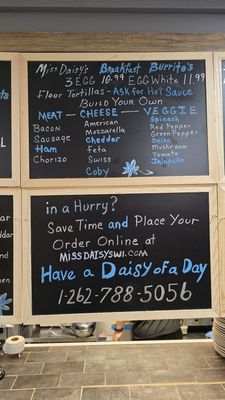 Miss Daisy's Breakfast Burrito's
3 EGG 10.99 EGG White 11.99
Flour Tortillas - Ask for Hot Sauce
Build Your Own
MEAT — CHEESE — VEGGIE
Bacon American Spinach
Sausage Mozzarella Red Pepper
Ham Cheddar Green Pepper
Chorizo Feta Onion
Swiss Mushroom
Coby Tomato
Jalapeño
in a Hurry?
Save Time and Place Your
Order Online at
MISSDAISYSWI.COM
Have a Daisy of a Day
1-262-788-5056